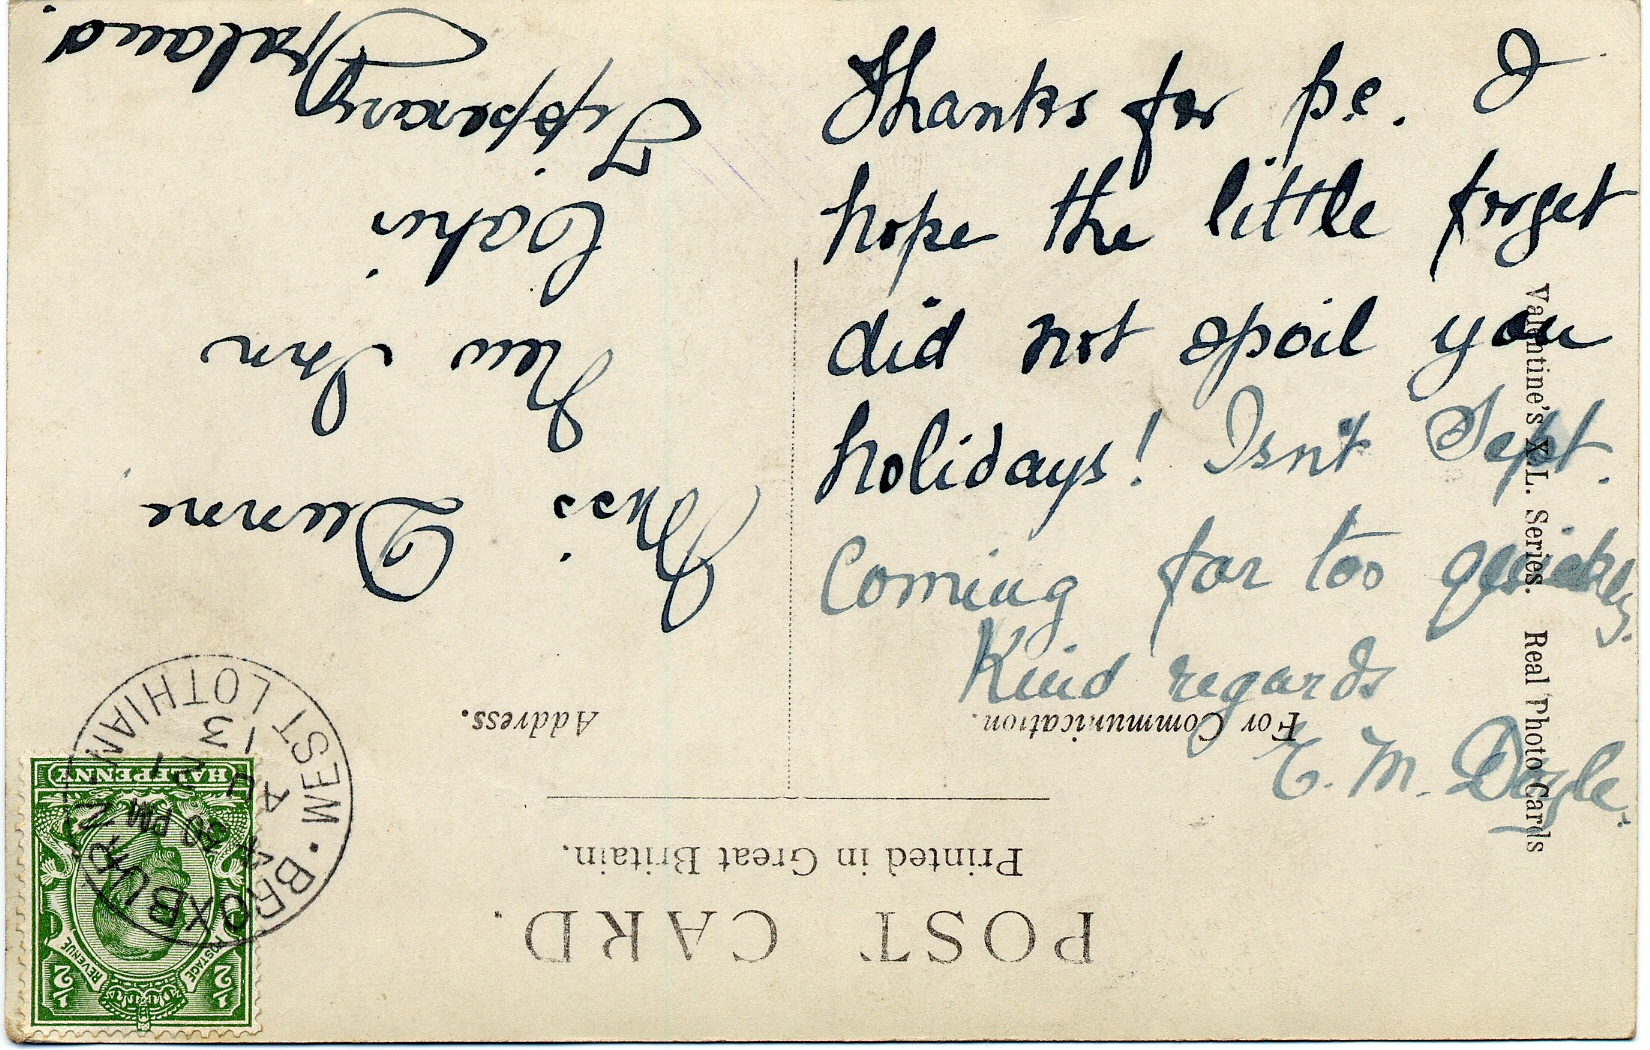 Thanks for p.c. I
hope the little forget
did not spoil you
holidays! Isn't Sept.
Coming far too quickly.
Kind regards
E. M. Doyle.
POST CARD.
Printed in Great Britain.
For Communication.
Address.
Miss Dunne
New Inn
Cahir
Tipperary
Ireland
Valentine's X.L. Series. Real Photo Cards
BROXBURN
WEST LOTHIAN
PM
AU 21
13
POSTAGE
REVENUE
½
½
HALFPENNY